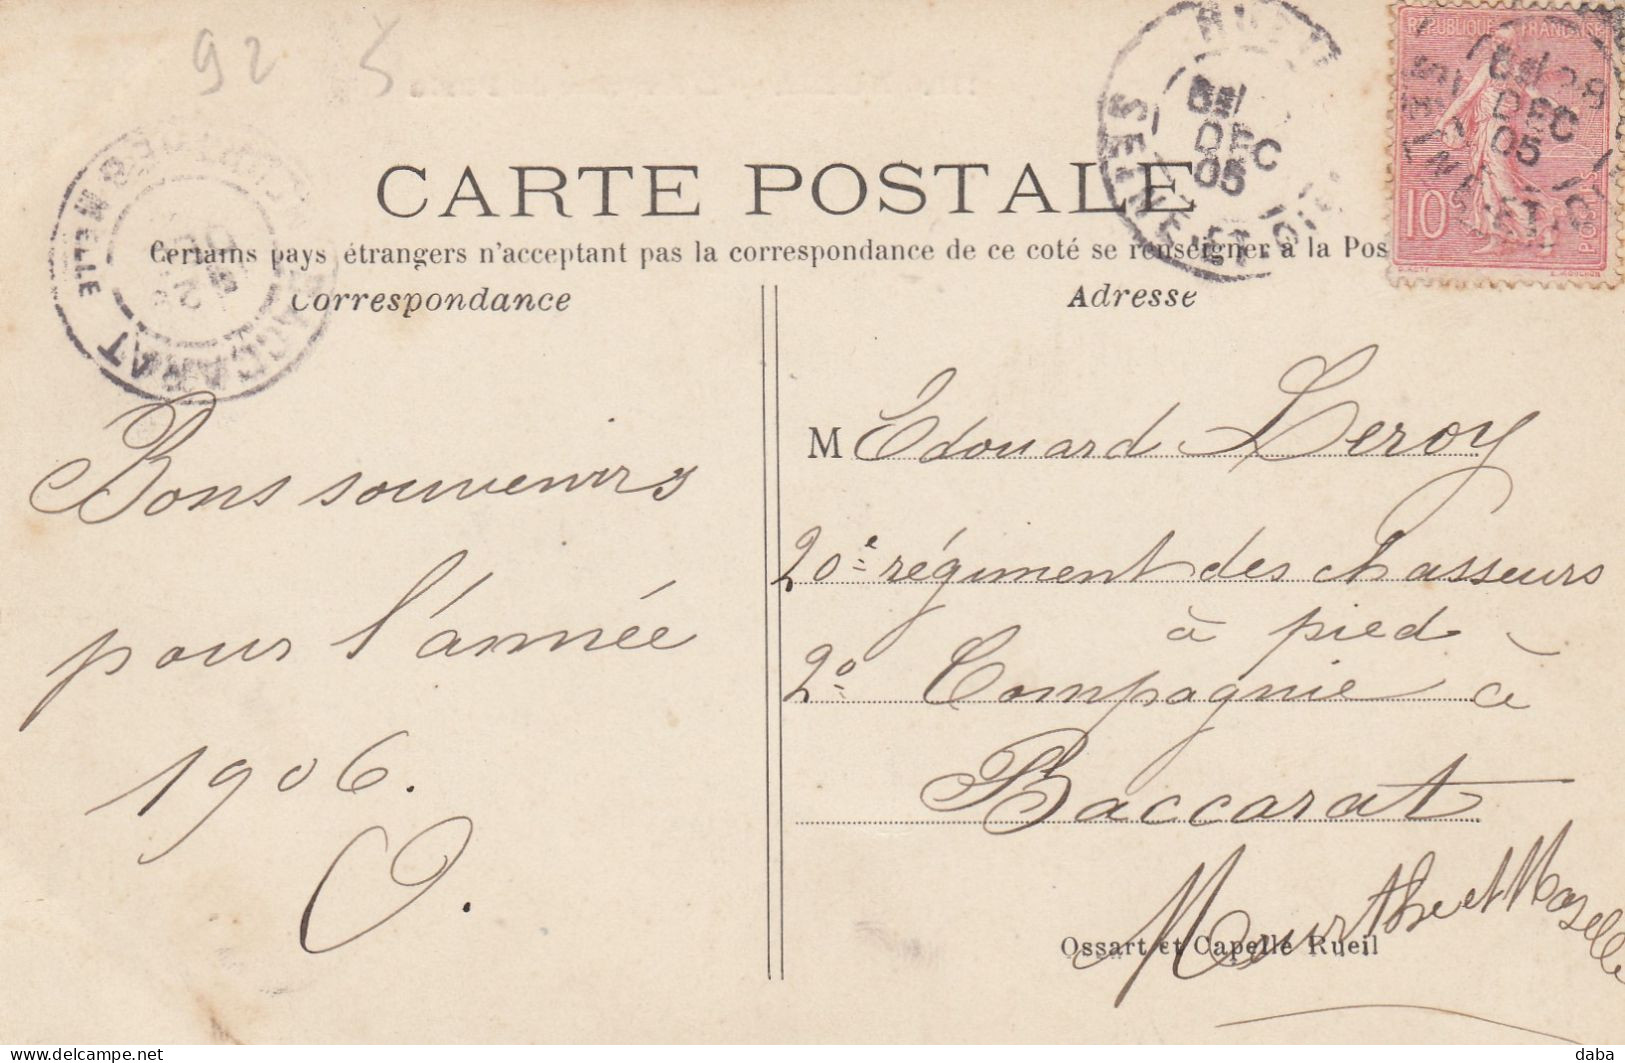 92 5
CARTE POSTALE
Certains pays étrangers n'acceptant pas la correspondance de ce coté se renseigner à la Pos
Correspondance
Adresse
REPUBLIQUE FRANÇAISE
10c
POSTES
DEC
05
SEINE-ET
BACCARAT
Bons souvenirs
pour l'année
1906.
O.
M Edouard Leroy
20e régiment des chasseurs
à pied
2e Compagnie à
Baccarat
Meurthe et Moselle
Ossart et Capelle Rueil
delcampe.net
daba